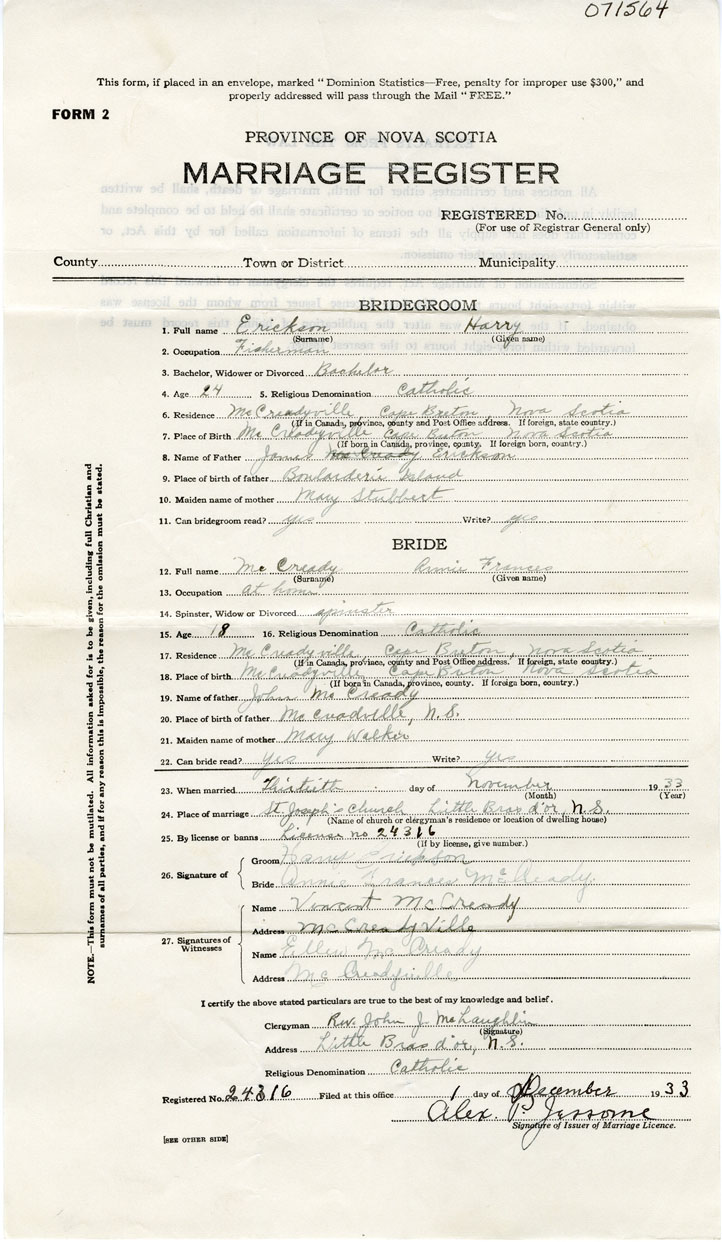 071564
This form, if placed in an envelope, marked "Dominion Statistics—Free, penalty for improper use $300," and
properly addressed will pass through the Mail "FREE."
FORM 2
PROVINCE OF NOVA SCOTIA
MARRIAGE REGISTER
REGISTERED No.
(For use of Registrar General only)
County Town or District Municipality
BRIDEGROOM
1. Full name Erickson Harry
(Surname) (Given name)
2. Occupation Fisherman
3. Bachelor, Widower or Divorced Bachelor
4. Age 24 5. Religious Denomination Catholic
6. Residence McCreadyville, Cape Breton, Nova Scotia
(If in Canada, province, county and Post Office address. If foreign, state country.)
7. Place of Birth McCreadyville Cape Breton Nova Scotia
(If born in Canada, province, county. If foreign born, country.)
8. Name of Father James McCready Erickson
9. Place of birth of father Boularderie Island
10. Maiden name of mother Mary Stubbert
11. Can bridegroom read? yes Write? yes
BRIDE
12. Full name McCready Annie Frances
(Surname) (Given name)
13. Occupation at home
14. Spinster, Widow or Divorced spinster
15. Age 18 16. Religious Denomination Catholic
17. Residence McCreadyville, Cape Breton, Nova Scotia
(If in Canada, province, county and Post Office address. If foreign, state country.)
18. Place of birth McCreadyville, Cape Breton Nova Scotia
(If born in Canada, province, county. If foreign born, country.)
19. Name of father John McCready
20. Place of birth of father McCreadville, N.S.
21. Maiden name of mother Mary Walker
22. Can bride read? yes Write? yes
23. When married Thirtieth day of November 1933
(Month) (Year)
24. Place of marriage St. Joseph's Church Little Bras d'or, N.S.
(Name of church or clergyman's residence or location of dwelling house)
25. By license or banns License no 24316
(If by license, give number.)
26. Signature of
Groom Harry Erickson
Bride Annie Frances McCready.
27. Signatures of Witnesses
Name Vincent McCready
Address McCreadyVille
Name Ellen McCready
Address McCreadyville
I certify the above stated particulars are true to the best of my knowledge and belief.
Clergyman Rev. John J. McLaughlin
(Signature)
Address Little Bras d'or, N.S.
Religious Denomination Catholic
Registered No. 24316 Filed at this office 1 day of December 1933
Alex. P. Jessome
Signature of Issuer of Marriage Licence.
[SEE OTHER SIDE]
NOTE.—This form must not be mutilated. All information asked for is to be given, including full Christian and
surnames of all parties, and if for any reason this is impossible, the reason for the omission must be stated.